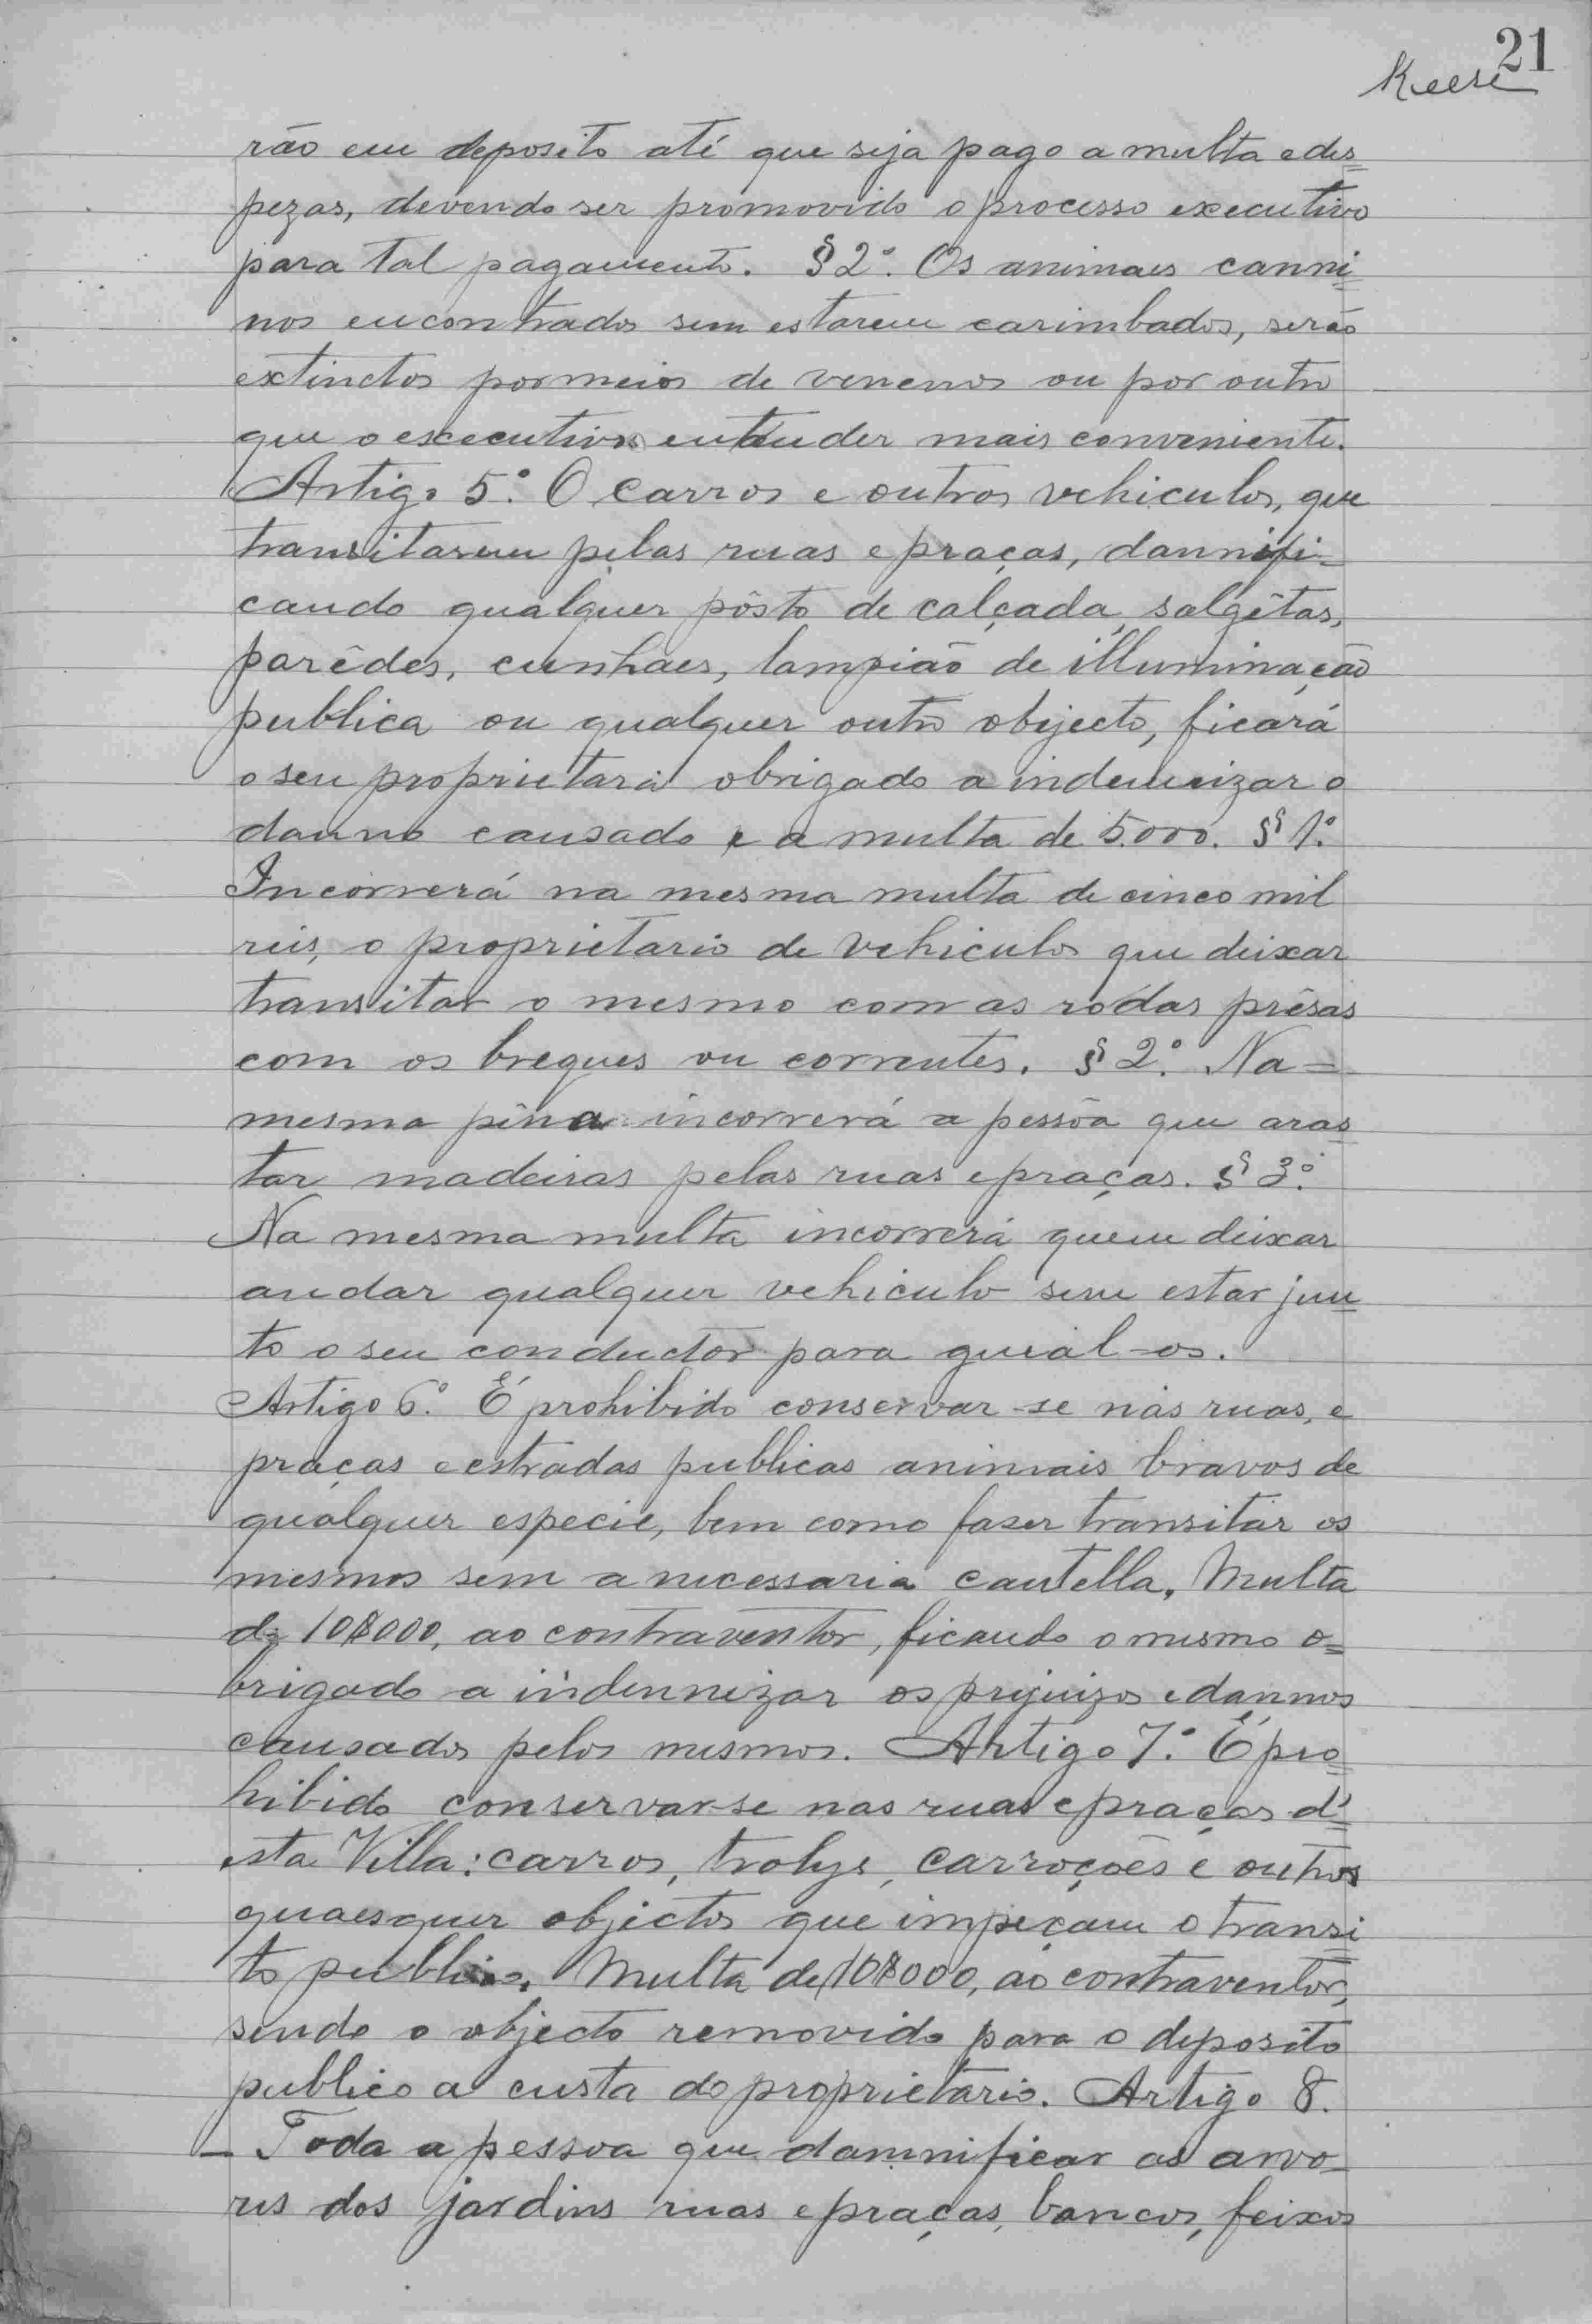 21
Keese
rão em deposito até que seja pago a multa e des=
pezas, devendo ser promovido o processo executivo
para tal pagamento. § 2º. Os animaes canni=
nos encontrados sem estarem carimbados, serão
extinctos por meios de venenos ou por outro
que o executivo entender mais conveniente.
Artigo 5º. O carros e outros vehiculos, que
transitarem pelas ruas e praças, dannifi=
cando qualquer pôsto de calçada, salgêtas,
parêdes, cunhaes, lampião de illuminação
publica ou qualquer outro objecto, ficará
o seu proprietario obrigado a indemnizar o
danno causado e a multa de 5.000. § 1º.
Incorrerá na mesma multa de cinco mil
reis, o proprietario de vehiculos que deixar
transitar o mesmo com as rodas prêsas
com os breques ou correntes. § 2º. Na=
mesma pêna incorrerá a pessôa que aras=
tar madeiras pelas ruas e praças. § 3º.
Na mesma multa incorrerá quem deixar
andar qualquer vehiculo sem estar jun=
to o seu conductor para guial-os.
Artigo 6º. É prohibido conservar-se nas ruas, e
praças e estradas publicas animais bravos de
qualquer especie, bem como faser transitar os
mesmos sem a necessaria cautella. Multa
de 10$000, ao contraventor, ficando o mesmo o=
brigado a indennizar os prejuizos e dannos
causados pelos mesmos. Artigo 7º. É pro=
hibido conservar-se nas ruas e praças d'=
esta Villa: carros, trolys, carroções e outros
quaesquer objectos que impeçam o transi=
to publico. Multa de 10$000, ao contraventor,
sendo o objecto removido para o deposito
publico a custa do proprietario. Artigo 8.
_ Toda a pessoa que damnificar as arvo=
res dos jardins ruas e praças, bancos, feixos